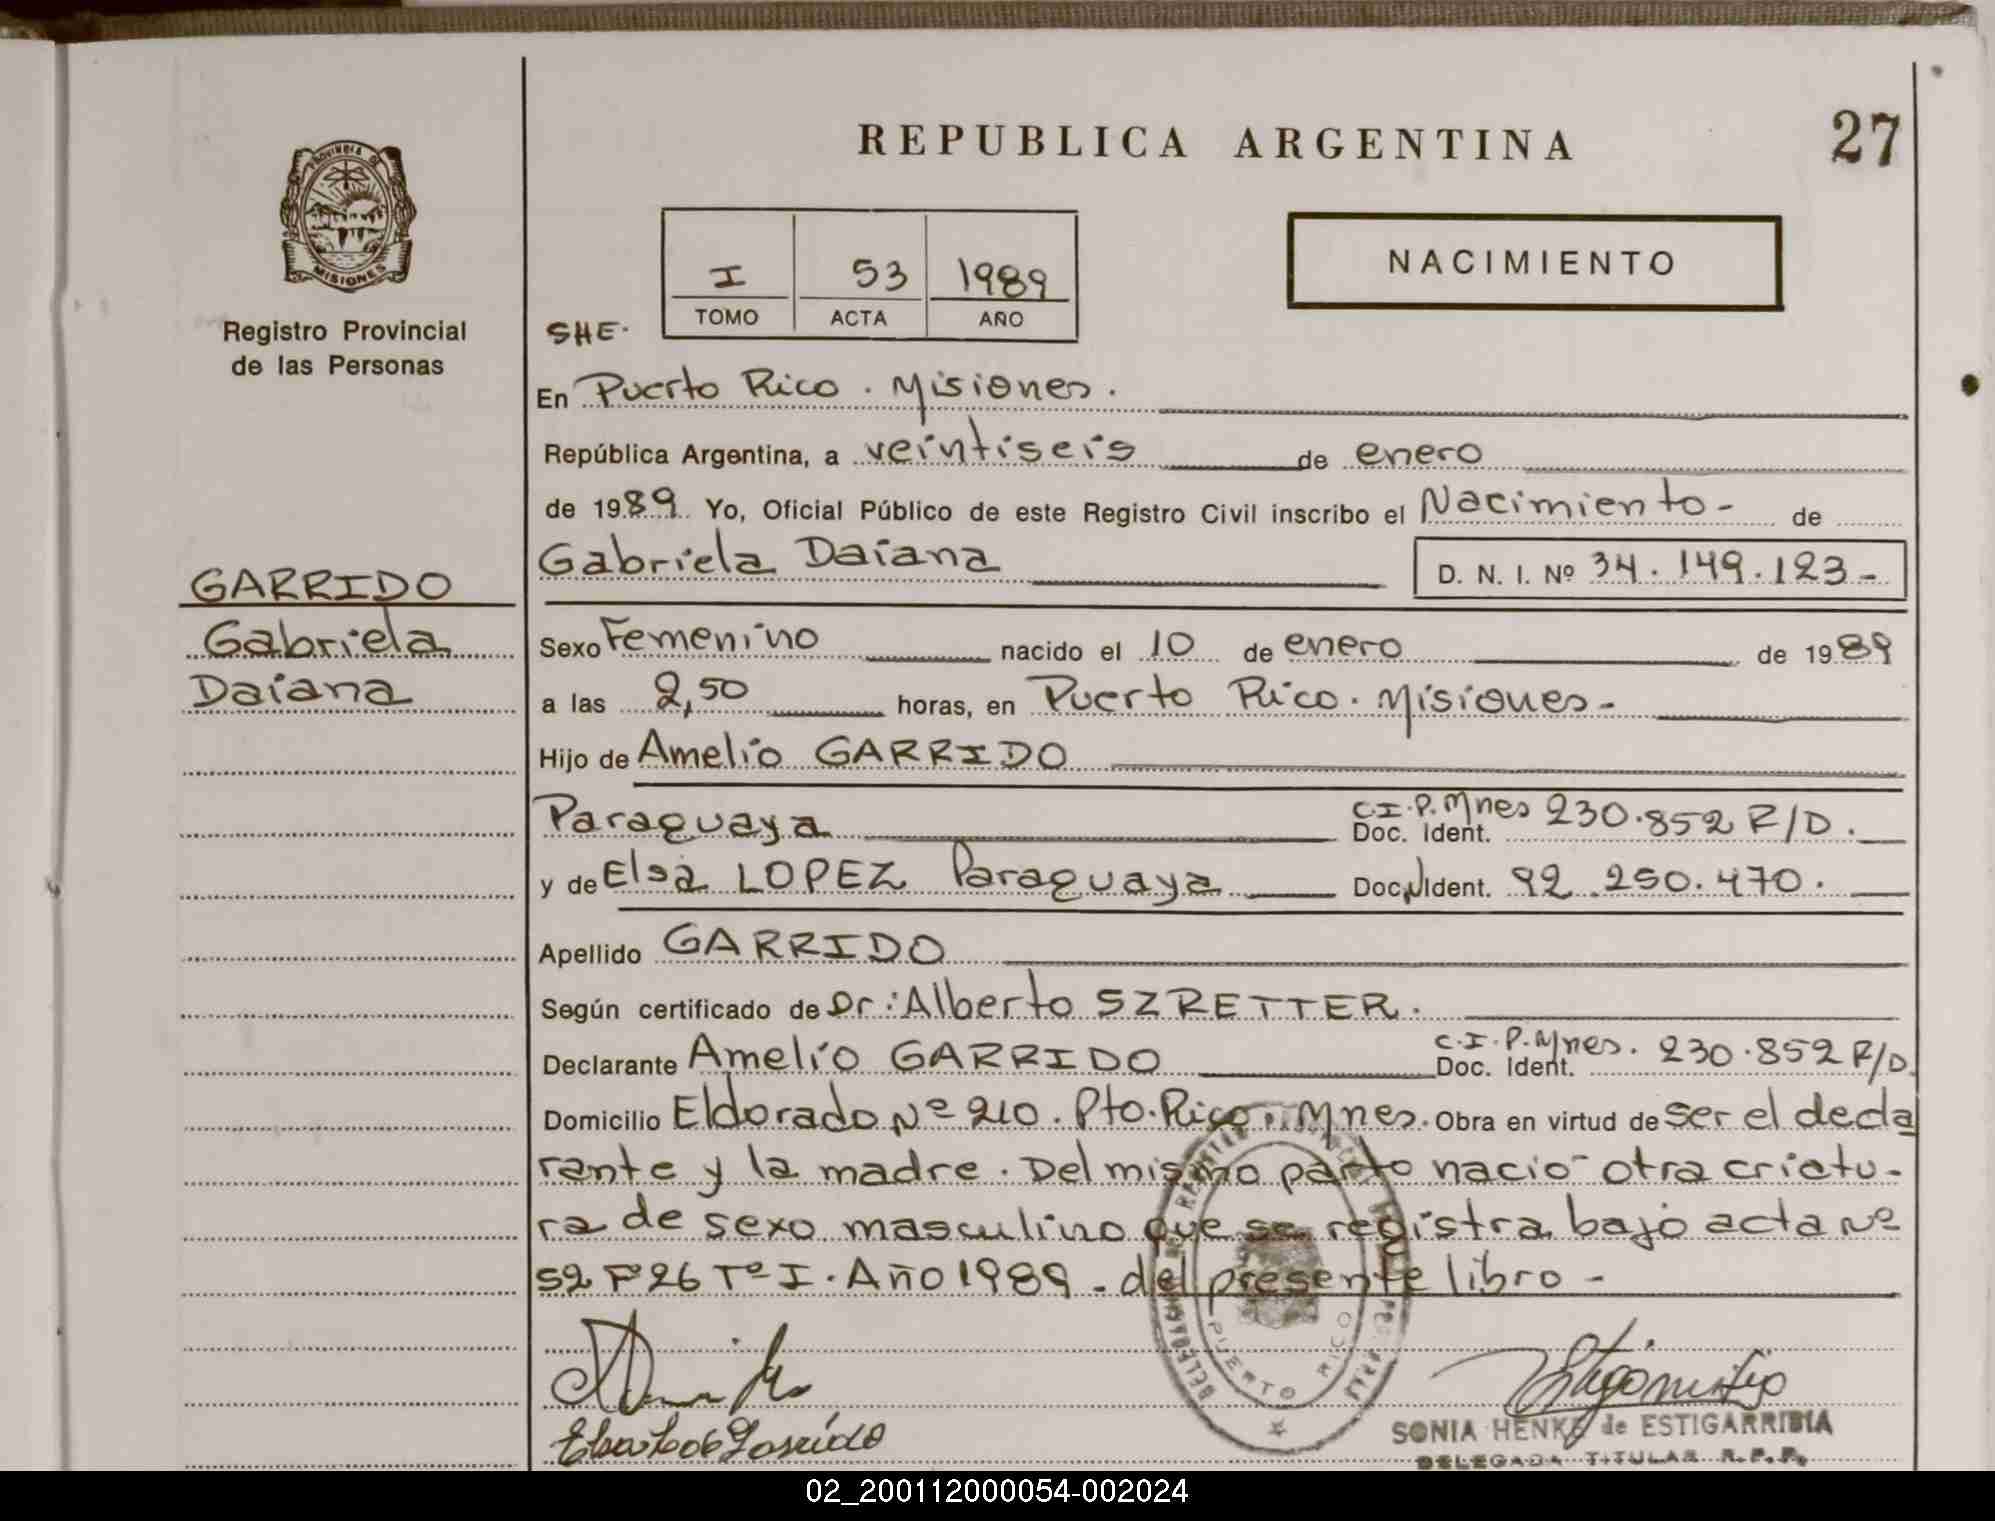 REPUBLICA ARGENTINA
27
PROVINCIA DE
MISIONES
Registro Provincial
de las Personas
I 53 1989
TOMO ACTA AÑO
NACIMIENTO
SHE.
En Puerto Rico. Misiones.
República Argentina, a veintiseis de enero
de 1989. Yo, Oficial Público de este Registro Civil inscribo el Nacimiento- de
Gabriela Daiana D. N. I. Nº 34.149.123-
GARRIDO
Gabriela
Daiana
Sexo Femenino nacido el 10 de enero de 1989
a las 2,50 horas, en Puerto Rico. Misiones-
Hijo de Amelio GARRIDO
Paraguaya C.I.P.Mnes Doc. Ident. 230.852 R/D.
y de Elsa LOPEZ Paraguaya Doc. Ident. 92.250.470.
Apellido GARRIDO
Según certificado de Dr: Alberto SZRETTER.
Declarante Amelio GARRIDO C.I.P.Mnes. Doc. Ident. 230.852 R/D.
Domicilio Eldorado Nº 210. Pto. Rico. Mnes. Obra en virtud de ser el decla
rante y la madre. Del mismo parto nació otra criatu-
ra de sexo masculino que se registra bajo acta Nº
52 Fº 26 Tº I. Año 1989 - del presente libro -
PUERTO RICO
SONIA HENKE de ESTIGARRIBIA
DELEGADA TITULAR R.P.P.
02_200112000054-002024